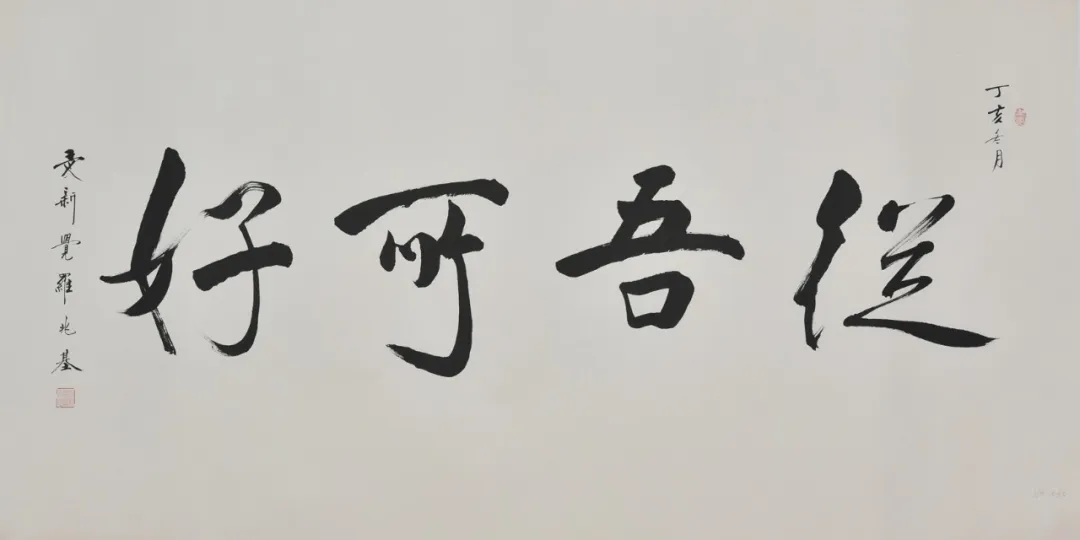 丁亥冬月
從吾所好
愛新覺羅兆基